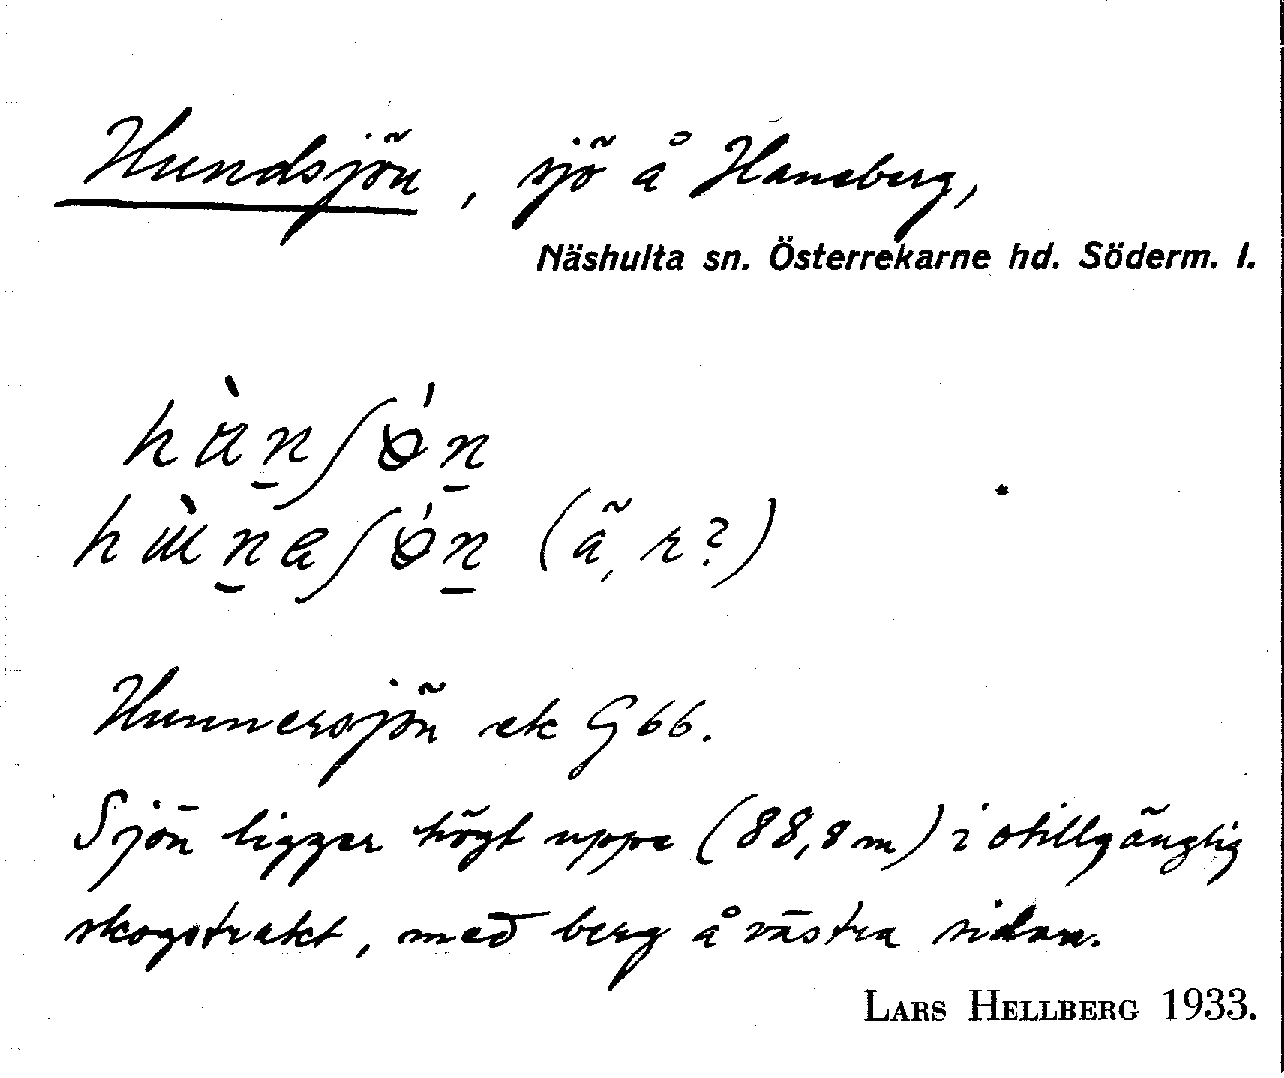 Hundsjön, sjö å Haneberg,
Näshulta sn. Österrekarne hd. Söderm. l.
Hunnersjön ek G 66.
Sjön ligger högt uppe (88,8 m) i otillgänglig
skogstrakt, med berg å västra sidan.
LARS HELLBERG 1933.